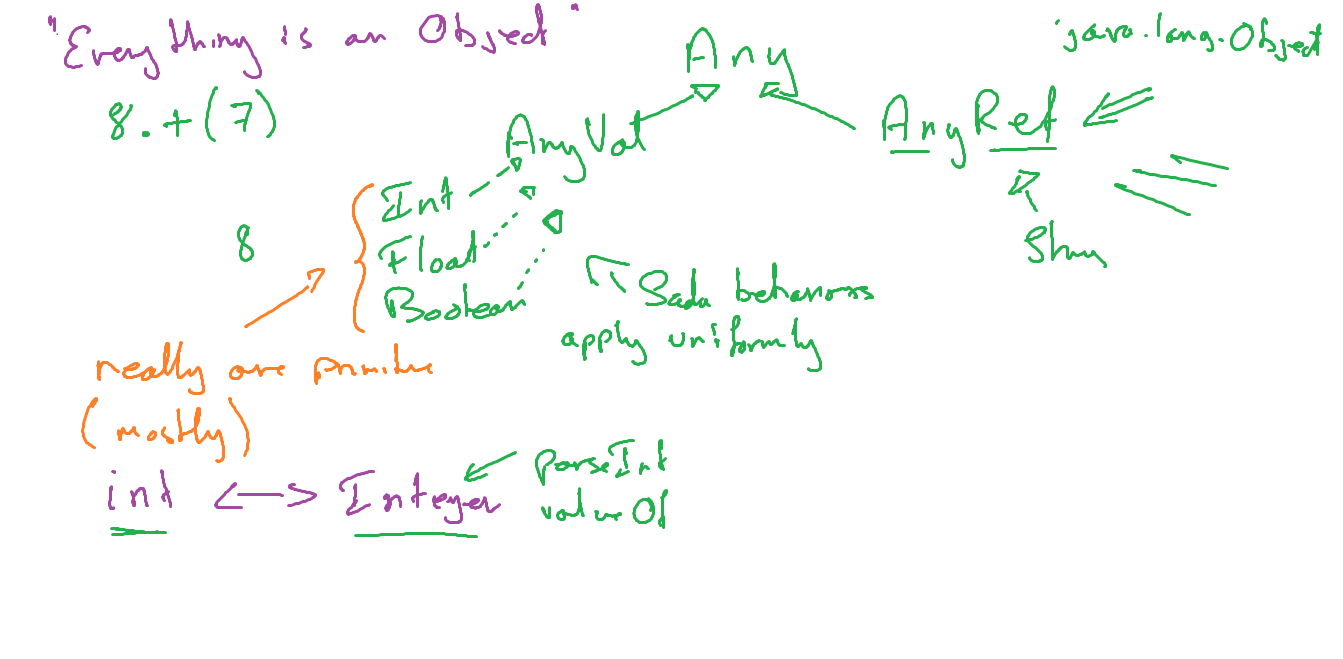 "Everything is an Object"
8.+(7)
Any
java.lang.Object
AnyVal
AnyRef
Int
Float
Boolean
8
behaviors
apply uniformly
really are primitive
(mostly)
int <—> Integer
parseInt
valueOf